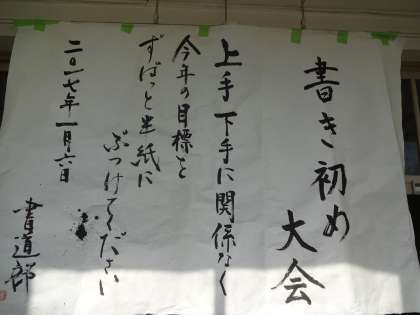 書き初め
大会
上手下手に関係なく
今年の目標を
ずばっと半紙に
ぶつけてください
二〇一七年一月六日
書道部